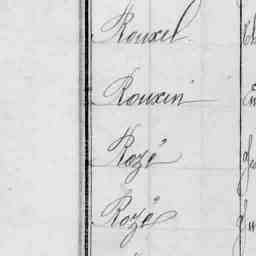 Rouxel
Rouxin
Rozé
Rozé